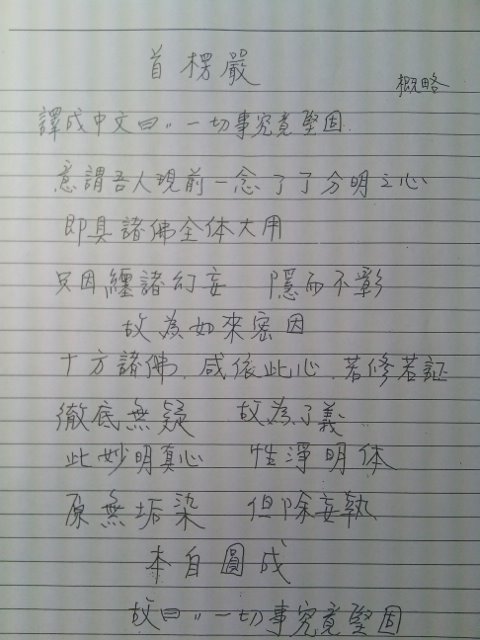 首楞嚴
概略
譯成中文曰〃一切事究竟堅固.
意謂吾人現前一念了了分明之心
即具諸佛全体大用
只因纏諸幻妄 隱而不彰
故為如來密因
十方諸佛.咸依此心.若修若証
徹底無疑 故為了義
此妙明真心 性淨明体
原無垢染 但除妄執
本自圓成
故曰〃一切事究竟堅固